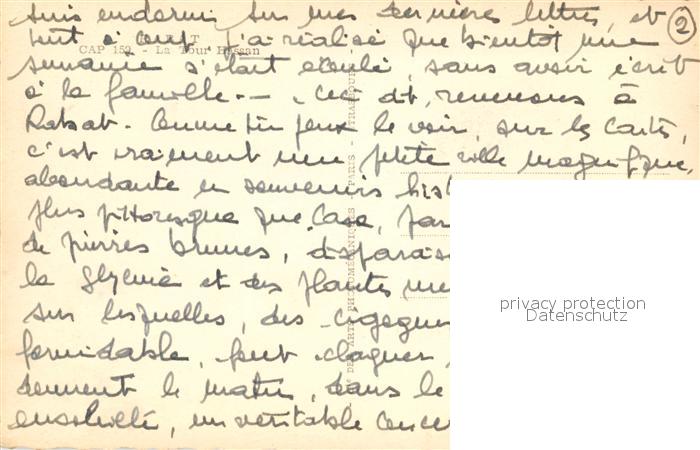 suis endormi sur mes dernières lettres, et
tout à coup j'ai réalisé que bientôt une
CAP 159 - La Tour Hassan
semaine s'était écoulée, sans avoir écrit
à la famille -- Ceci dit, revenons à
Rabat. Comme tu peux le voir, sur les cartes,
c'est vraiment une petite ville magnifique,
abondante en souvenirs hist
plus pittoresque que Casa, par
de pierres brunes, disparais
la glycine et des plantes
sur lesquelles, des cigognes
formidable, font claquer
donnent le matin, dans le
ensoleillé, un véritable conce
2
privacy protection
Datenschutz